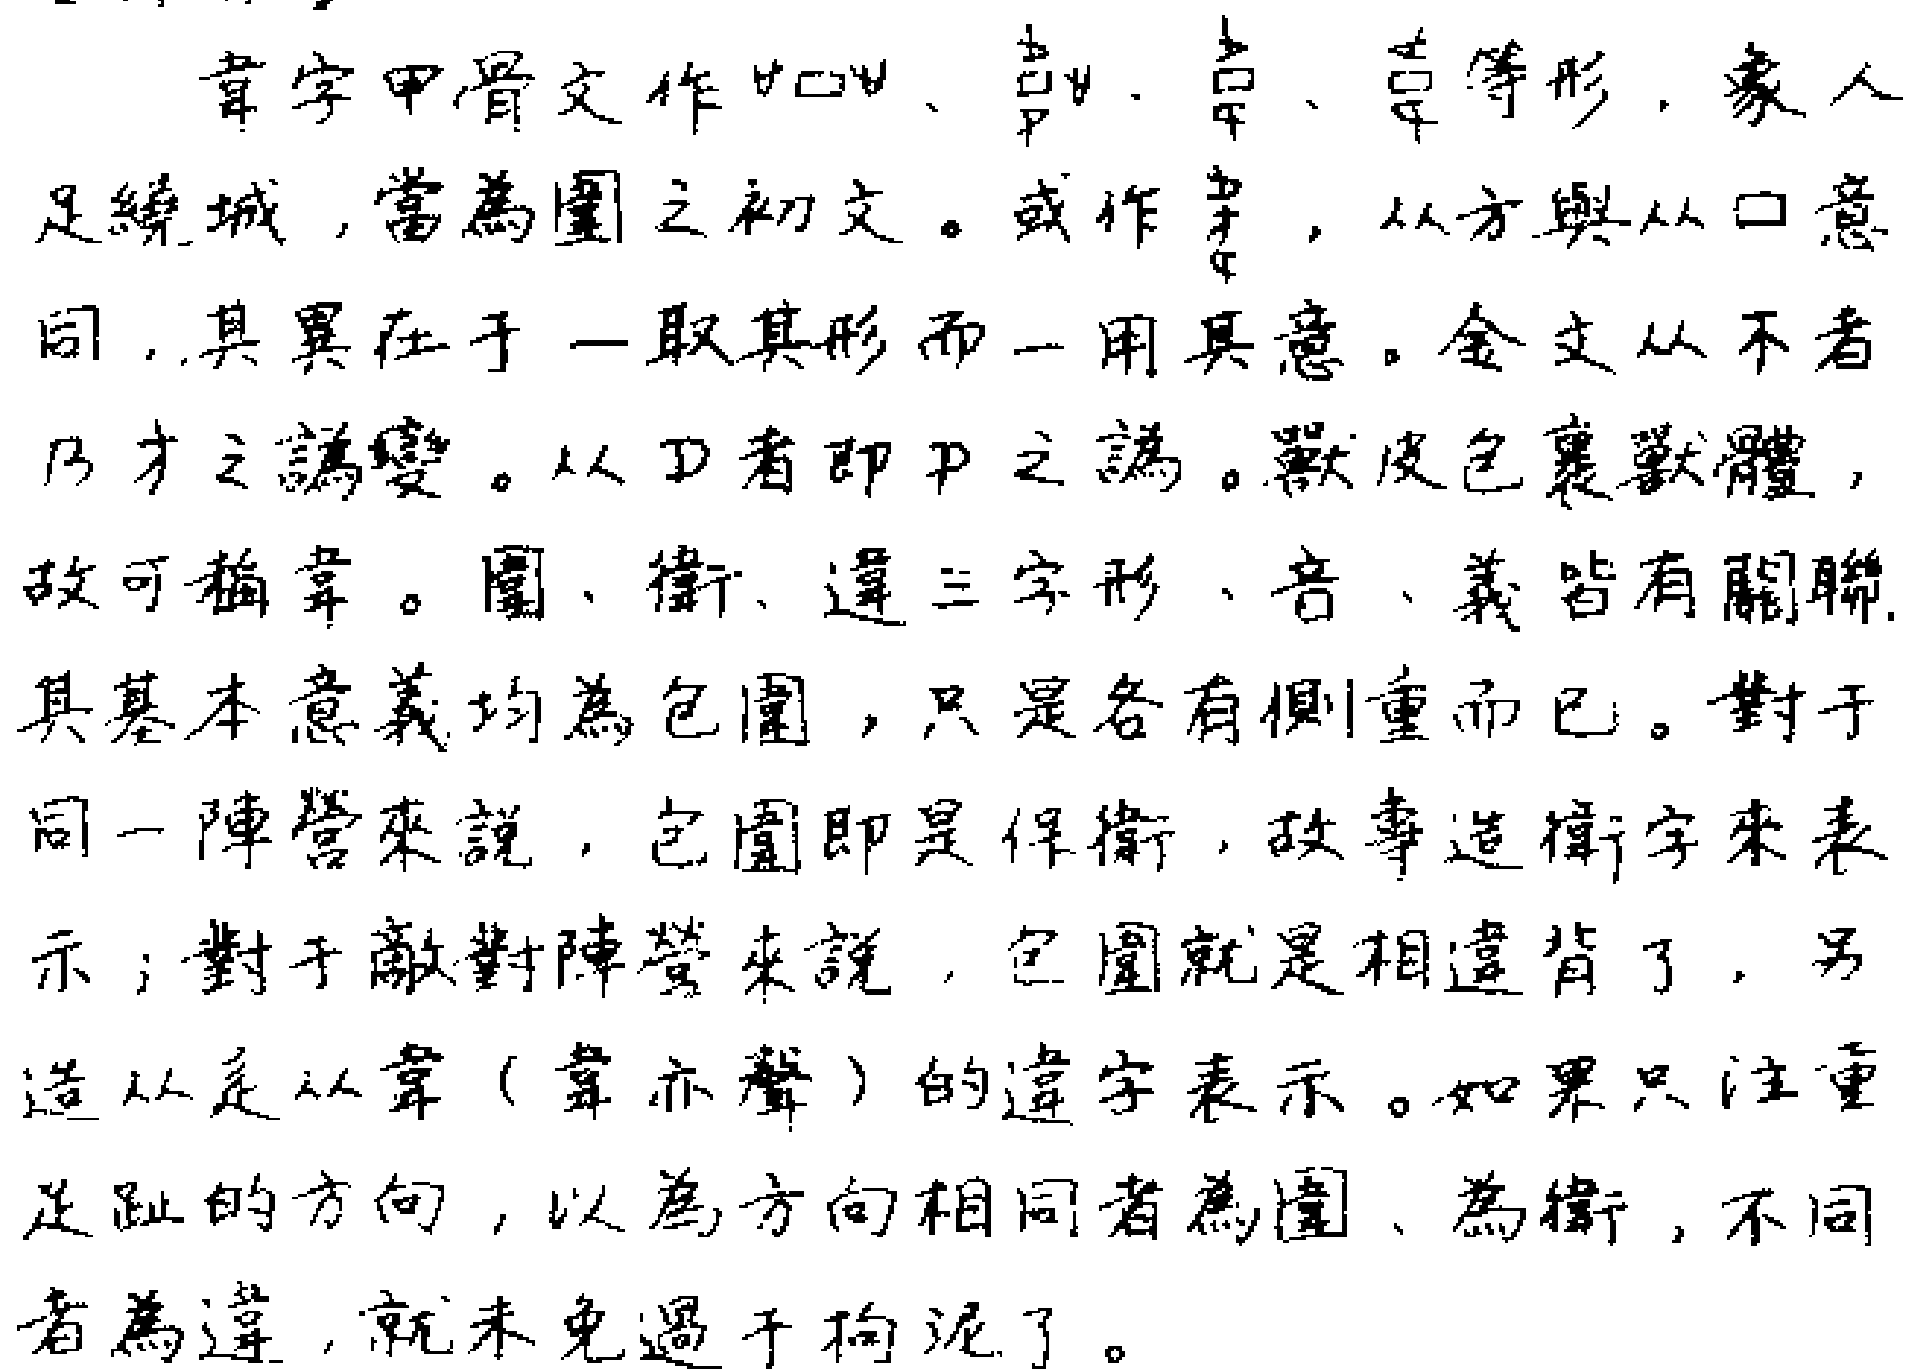 韋字甲骨文作、、、等形，象人
足繞城，當為圍之初文。或作，从方與从囗意
同，其異在于一取其形而一用其意。金文从不者
乃才之譌變。从者即之譌。獸皮包裹獸體，
故可稱韋。圍、衛、違三字形、音、義皆有關聯．
其基本意義均為包圍，只是各有側重而已。對于
同一陣營來說，包圍即是保衛，故專造衛字來表
示；對于敵對陣營來說，包圍就是相違背了，另
造从辵从韋（韋亦聲）的違字表示。如果只注重
足趾的方向，以為方向相同者為圍、為衛，不同
者為違，就未免過于拘泥了。